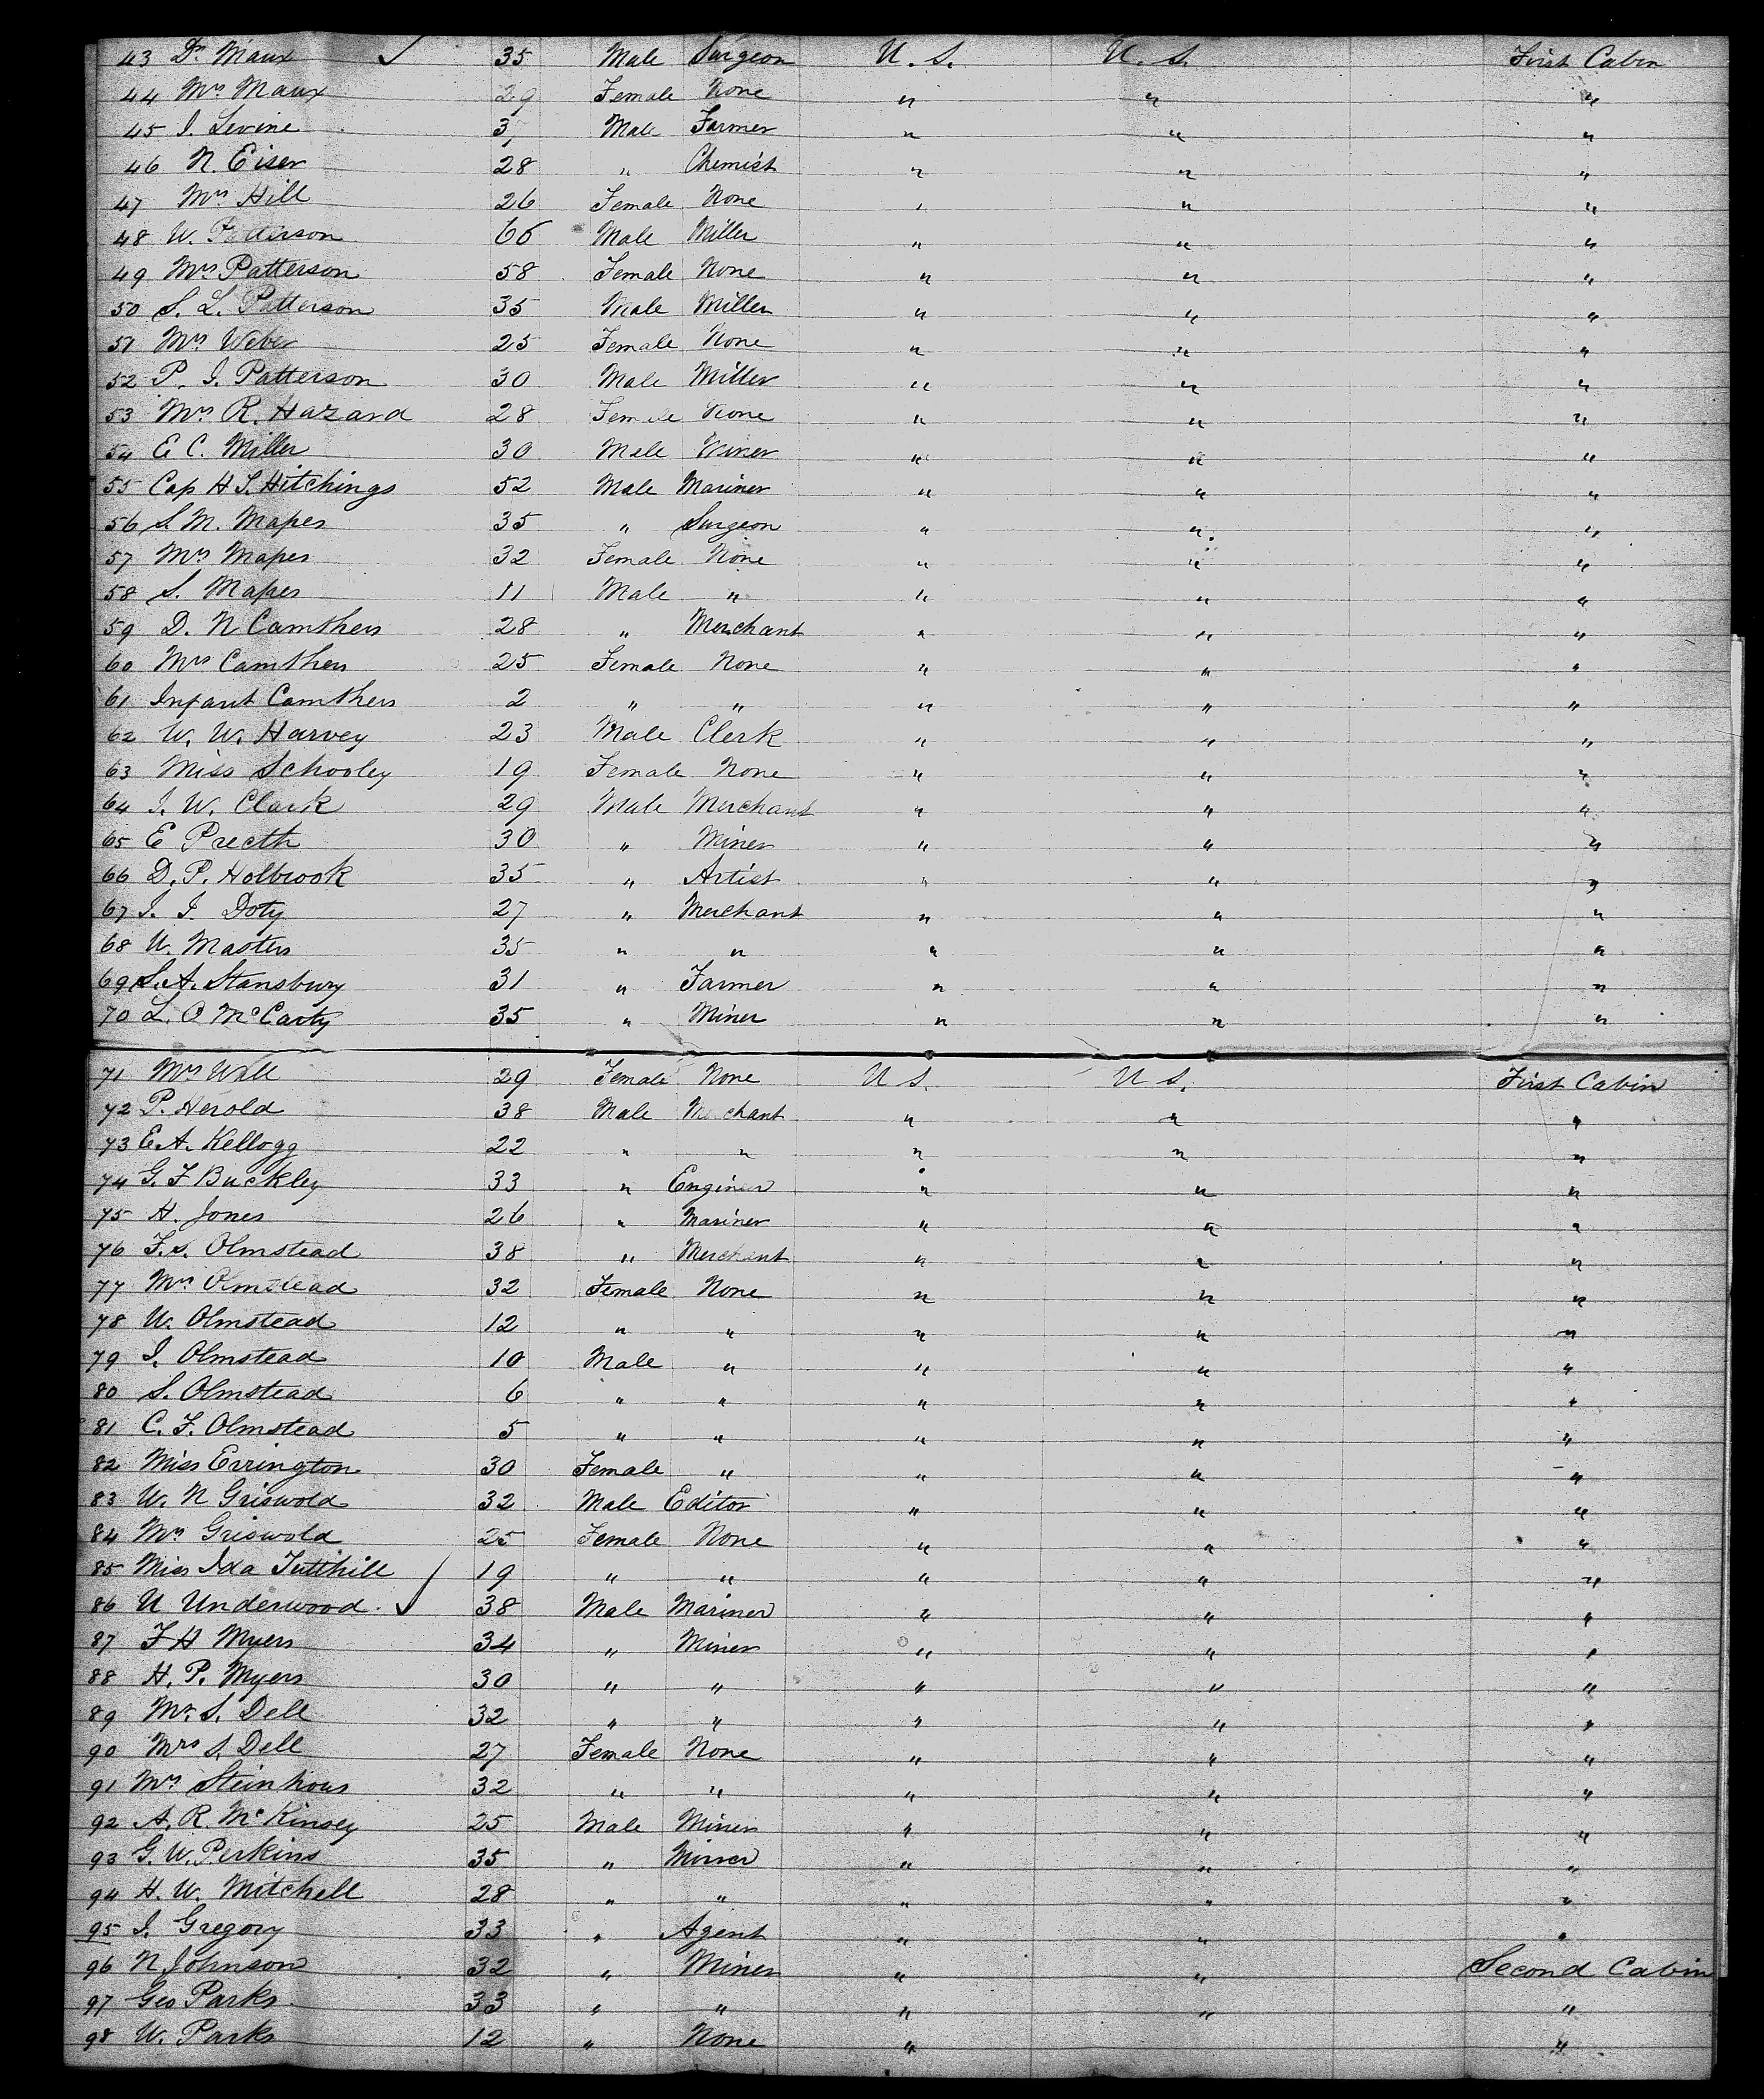 43 Dr. Maux 35 Male Surgeon U. S. U. S. First Cabin
44 Mrs Maux 29 Female None " " "
45 I. Levine Male Farmer " " "
46 N. Eiser 28 " Chemist " " "
47 Mrs Hill 26 Female None " " "
48 W. Patterson 66 Male Miller " " "
49 Mrs Patterson 58 Female None " " "
50 S. L. Patterson 35 Male Miller " " "
51 Mrs Weber 25 Female None " " "
52 P. I. Patterson 30 Male Miller " " "
53 Mrs R. Hazard 28 Female None " " "
54 E C. Miller 30 Male Miner " " "
55 Cap H S. Hitchings 52 Male Mariner " " "
56 S. M. Mapes 35 " Surgeon " " "
57 Mrs Mapes 32 Female None " " "
58 S. Mapes 11 Male " " " "
59 D. N Camthers 28 " Merchant " " "
60 Mrs Camthers 25 Female None " " "
61 Infant Camthers 2 " " " " "
62 W. W. Harvey 23 Male Clerk " " "
63 Miss Schooley 19 Female None " " "
64 I. W. Clark 29 Male Merchant " " "
65 E Precth 30 " Miner " " "
66 D. P. Holbrook 35 " Artist " " "
67 I. I. Doty 27 " Merchant " " "
68 W. Masters 35 " " " " "
69 S. A. Stansbury 31 " Farmer " " "
70 L. O McCarty 35 " Miner " " "
71 Mrs Wall 29 Female None U S. U S. First Cabin
72 P. Herold 38 Male Merchant " " "
73 E. A. Kellogg 22 " " " " "
74 G. F Buckley 33 " Engineer " " "
75 H. Jones 26 " Mariner " " "
76 F. S. Olmstead 38 " Merchant " " "
77 Mrs Olmstead 32 Female None " " "
78 W. Olmstead 12 " " " " "
79 I. Olmstead 10 Male " " " "
80 S. Olmstead 6 " " " " "
81 C. F. Olmstead 5 " " " " "
82 Miss Errington 30 Female " " " "
83 W. N Griswold 32 Male Editor " " "
84 Mrs Griswold 25 Female None " " "
85 Miss Ida Tutthill 19 " " " " "
86 U Underwood 38 Male Mariner " " "
87 F H Myers 34 " Miner " " "
88 H. P. Myers 30 " " " " "
89 Mr. S. Dell 32 " " " " "
90 Mrs S. Dell 27 Female None " " "
91 Mrs Steinhous 32 " " " " "
92 A. R. McKinsey 25 Male Miner " " "
93 G. W. Perkins 35 " Miner " " "
94 H. W. Mitchell 28 " " " " "
95 I. Gregory 33 " Agent " " "
96 N Johnson 32 " Miner " " Second Cabin
97 Geo Parks 33 " " " " "
98 W. Parks 12 " None " "